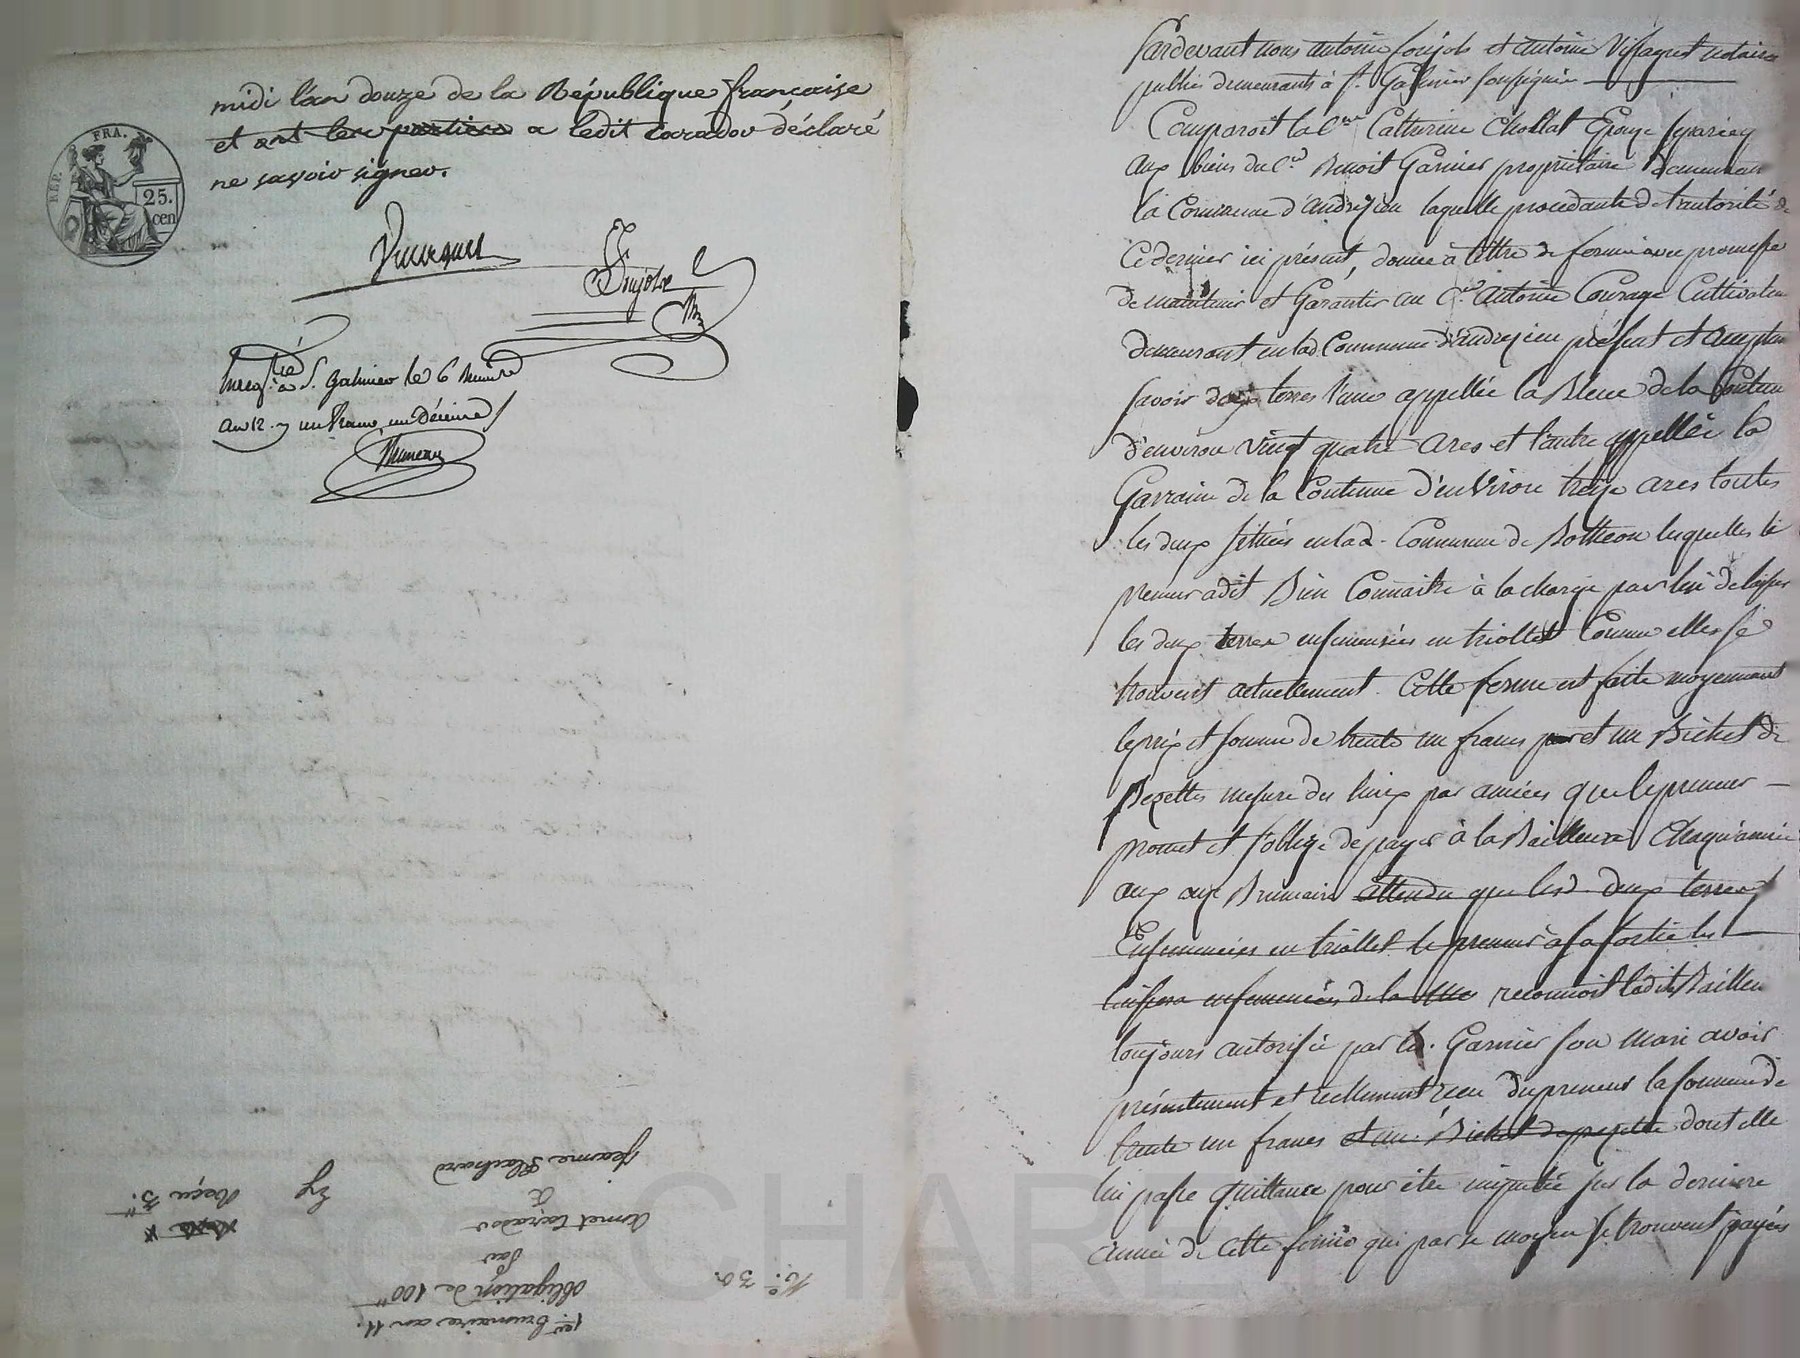 midi l'an douze de la République française
et ont les parties a ledit Caradou déclaré
ne savoir signer.
REP. FRA.
25.
cen
Soujols
Enregtré à St. Galmier le 6 
an 12. un franc un décime
1er brumaire an 11.
obligation de 100"
par
Amet Caradou
a
Jeanne Flachard
Reçu 3."
No. 30.
CHAR
Pardevant nous antoine Soujols et antoine Vissaguet notaires
publics demeurants à St. Galmier soussignés
Comparoit la Cne Catherine Chollat Epouse séparée
aux biens du Cn. Benoit Garnier propriétaire demeurant
la Commune d'andrezieu laquelle procedante de l'autorité de
Ce dernier ici présent, donne à titre de ferme avec promesse
de maintenir et Garantir au Cn. antoine Courage Cultivateur
demeurant en lad. Commune d'andrezieu présent et acceptant
savoir deux terres l'une appellée la Bleue de la Contenue
d'environ vingt quatre ares et l'autre appellée la
Garraine de la Contenue d'environ treize ares toutes
les deux situées en lad. Commune de Bothéon lesquelles le
preneur a dit Bien Connaitre à la charge par lui de laisser
les deux terres ensemencées en triollet Comme elles se
trouvent actuellement. Cette ferme est faite moyennant
le prix et somme de trente un francs par et un Bichet de
Pezettes mesure des lieux par années que le preneur
promet et s'oblige de payer à la Bailleuse Chaqu'année
aux Brumaire attendu que lesd. deux terres
Ensemencées en triollet le preneur à sa sortie les
laissera ensemencées de la reconnoit ladite Bailleu
toujours autorisée par led. Garnier son mari avoir
présentement et réellement reçu du preneur la somme de
trente un francs et un Bichet de pezette dont elle
lui passe quittance pour être imputée sur la derniere
année de cette ferme qui par ce moyen se trouvent payés